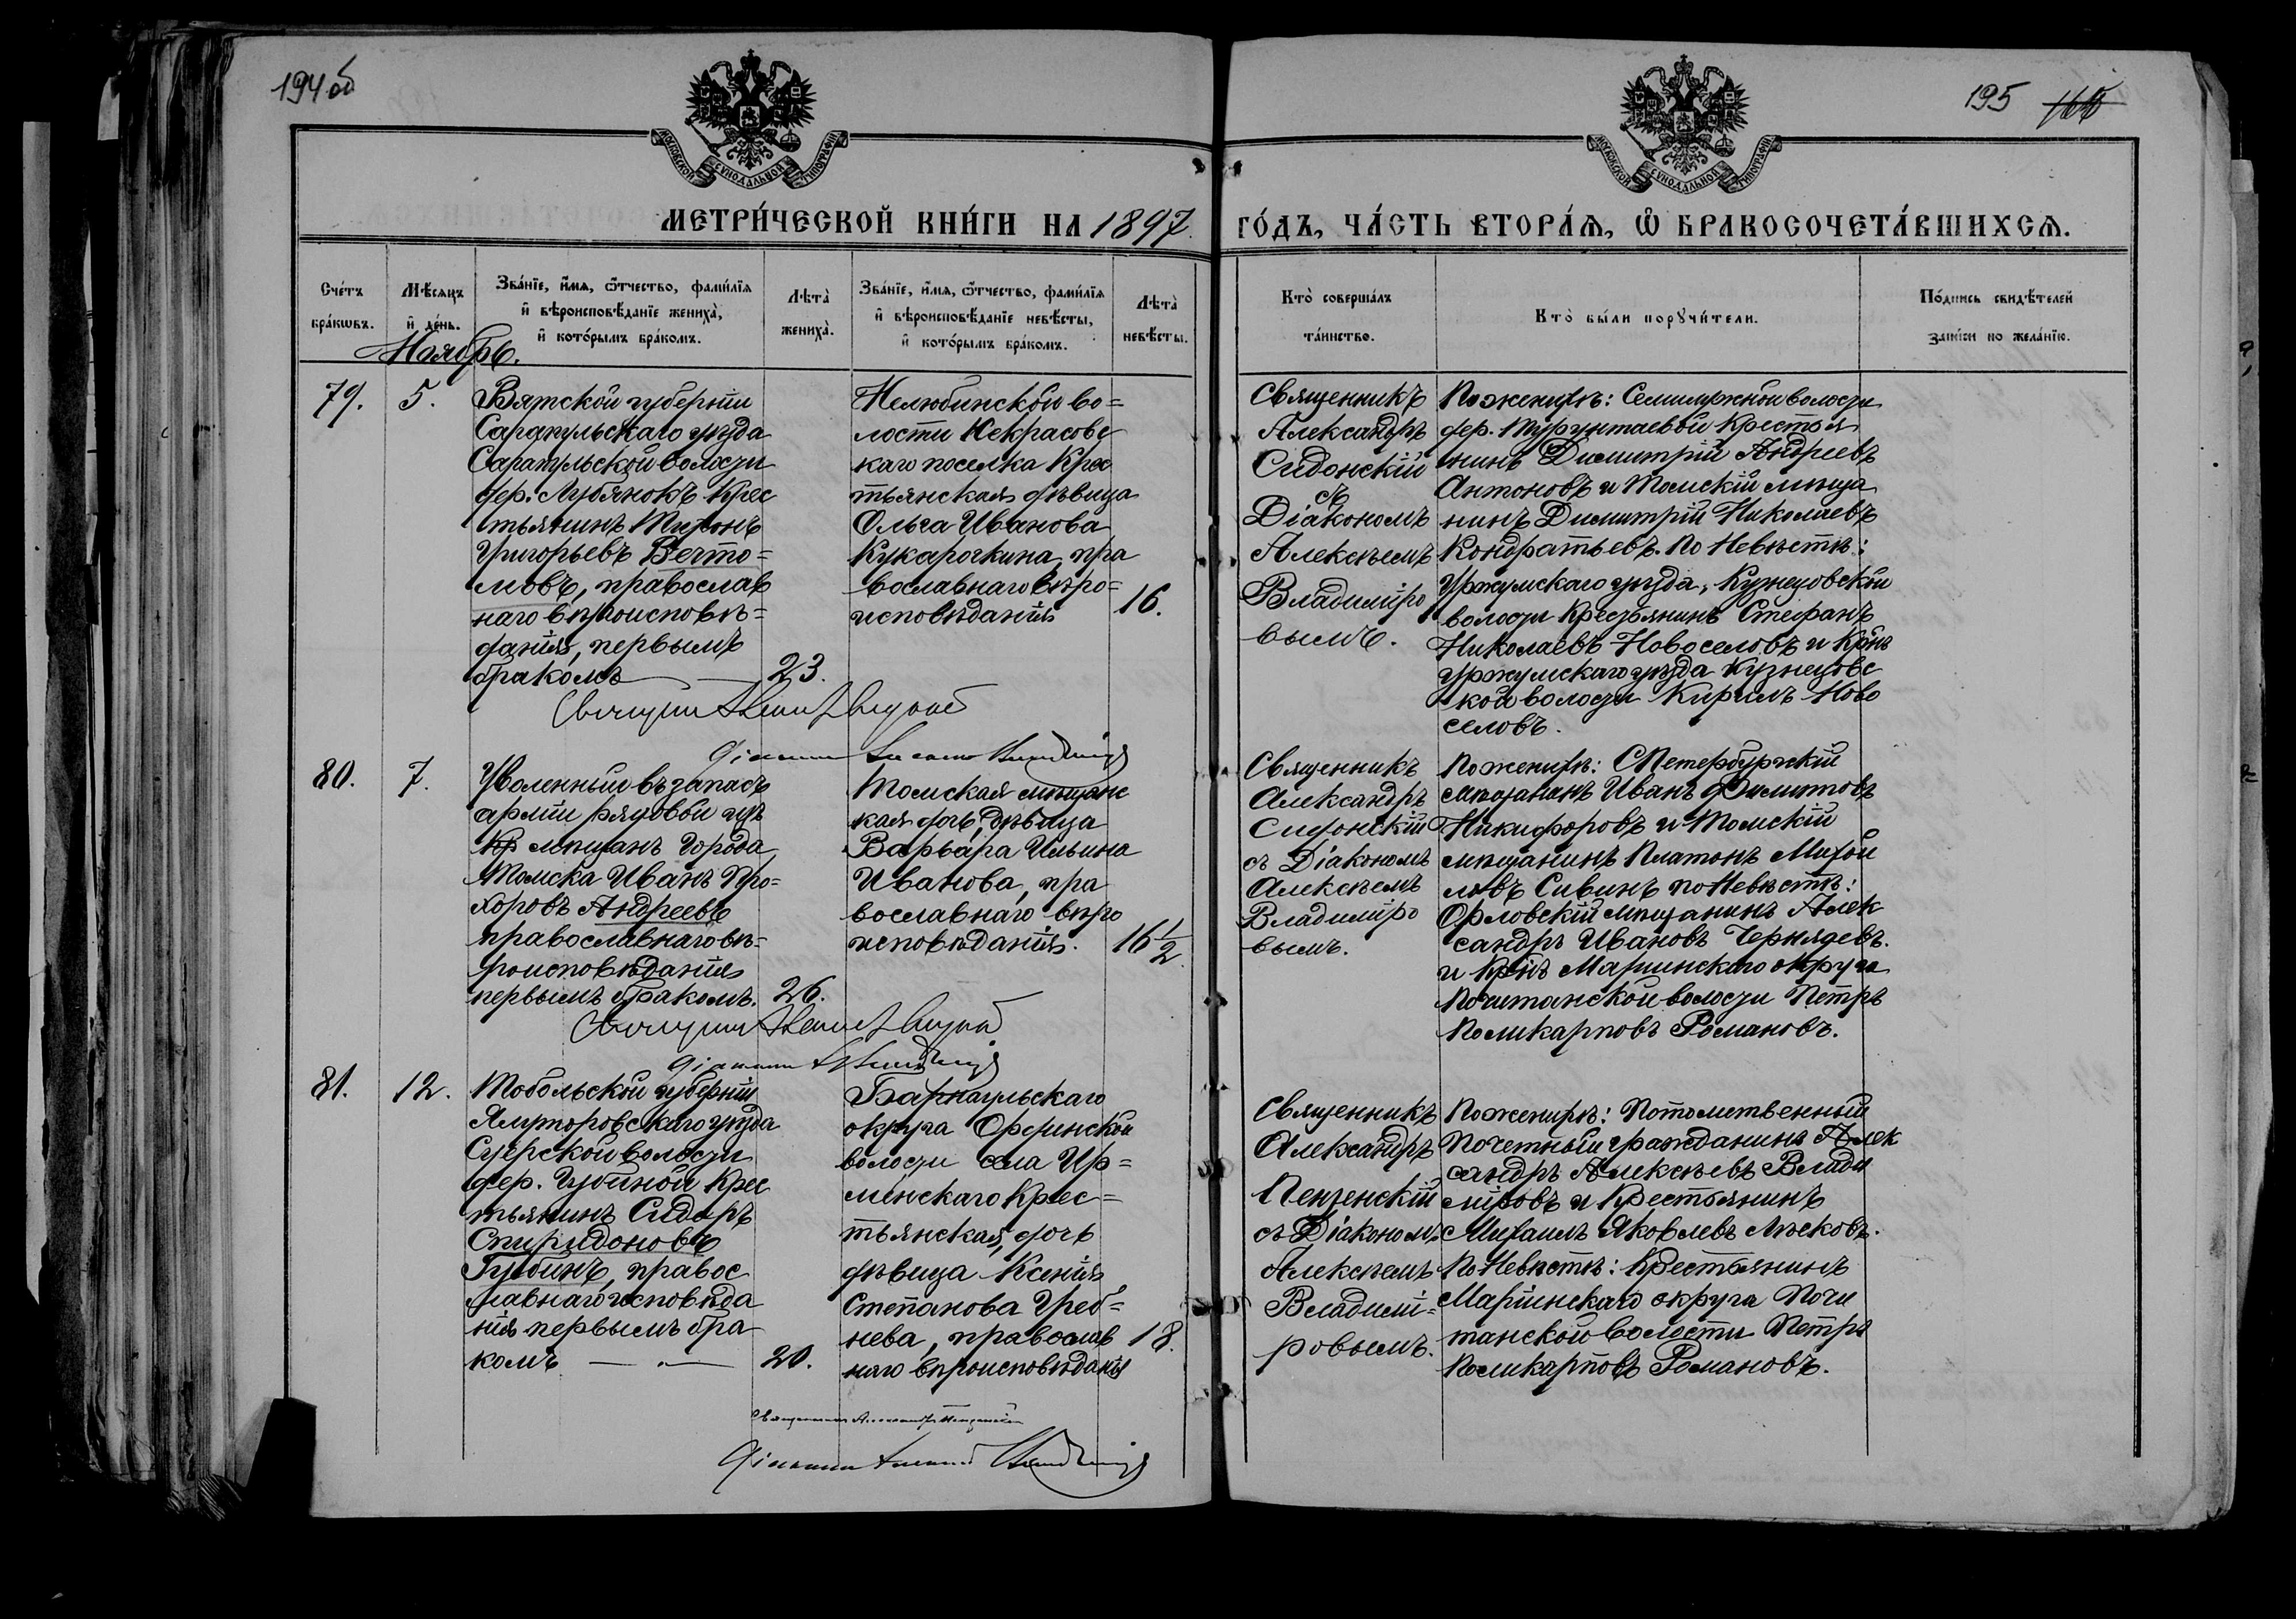 194 об
195 166
МОСКОВСКОЙ СѴНОДАЛЬНОЙ ТИПОГРАФІИ
МОСКОВСКОЙ СѴНОДАЛЬНОЙ ТИПОГРАФІИ
МЕТРИ́ЧЕСКОЙ КНИ́ГИ НА 1897
ГО́ДЪ, ЧА́СТЬ ВТОРА́Ѧ, Ѡ҆ БРАКОСОЧЕТА́ВШИХСѦ.
Сче́тъ
бра́кѡвъ.
Мѣ́сѧцъ
и҆ де́нь.
Зва́нїе, и҆́мѧ, ѻ҆́тчество, фами́лїѧ
и҆ вѣроисповѣ́данїе жениха̀,
и҆ кото́рымъ бра́комъ.
Лѣта̀
жениха̀.
Зва́нїе, и҆́мѧ, ѻ҆́тчество, фами́лїѧ
и҆ вѣроисповѣ́данїе невѣ́сты,
и҆ кото́рымъ бра́комъ.
Лѣта̀
невѣ́сты.
Кто̀ соверша́лъ
та́инство.
Кто̀ бы́ли порꙋчи́тели.
По́дпись свидѣ́телей
за́писи по жела́нїю.
Ноябрь.
79.
5.
Вятской губерніи
Сарапульскаго уѣзда
Сарапульской волости
дер. Лубянокъ Крес
тьянинъ Тихонъ
Григорьевъ Вечто=
мовъ, православ
наго вѣроисповѣ=
данія, первымъ
бракомъ
23.
Нелюбинской во=
лости Некрасовс
каго поселка Крес
тьянская дѣвица
Ольга Иванова
Кукарочкина, пра
вославнаго вѣро=
исповѣданія
16.
Священникъ
Александръ
Сидонскій
съ
Діакономъ
Алексѣемъ
Владиміро
вымъ.
По женихѣ: Семилужной волости
дер. Турунтаевой Крестья
нинъ Димитрій Андреевъ
Антоновъ и Томскій мѣща
нинъ Димитрій Николаевъ
Кондратьевъ. По Невѣстѣ:
Уржумскаго уѣзда, Кузнецовской
волости Крестьянинъ Стефанъ
Николаевъ Новоселовъ и Крнъ
Уржумскаго уѣзда Кузнецовс
кой волости Кирилъ Ново
селовъ.
80.
7.
Уволенный въ запасъ
арміи рядовой изъ
Кр мѣщанъ города
Томска Иванъ Про=
хоровъ Андреевъ
православнаго вѣ=
роисповѣданія
первымъ бракомъ.
26.
Томская мѣщанс
кая дочь, дѣвица
Варвара Ильина
Иванова, пра
вославнаго вѣро
исповѣданія.
16 1/2
Священникъ
Александръ
Сидонскій
съ Діакономъ
Алексѣемъ
Владиміро
вымъ.
По женихѣ: СПетербургскій
мѣщанинъ Иванъ Филиповъ
Никифоровъ и Томскій
мѣщанинъ Платонъ Михай
ловъ Сивинъ по Невѣстѣ:
Орловскій мѣщанинъ Алек
сандръ Ивановъ Чернядевъ.
и Крнъ Маріинскаго округа
Почитанской волости Петръ
Поликарповъ Романовъ.
81.
12.
Тобольской губерніи
Ялуторовскаго уѣзда
Суерской волости
дер. Губиной Крес
тьянинъ Сидоръ
Спиридоновъ
Губинъ, правос
лавнаго исповѣда
нія первымъ бра
комъ
20.
Барнаульскаго
округа Ординской
волости села Ир=
менскаго Крес=
тьянская дочь
дѣвица Ксенія
Степанова Греб=
нева, православ
наго вѣроисповѣданія
18.
Священникъ
Александръ
Пензенскій
съ Діакономъ
Алексѣемъ
Владимі=
ровымъ.
По женихѣ: Потомственный
Почетный гражданинъ Алек
сандръ Алексѣевъ Влади
міровъ и Крестьянинъ
Михаилъ Яковлевъ Лѣсковъ.
По Невѣстѣ: Крестьянинъ
Маріинскаго округа Почи
танской волости Петръ
Поликарповъ Романовъ.
Священникъ Александръ Пензенскій